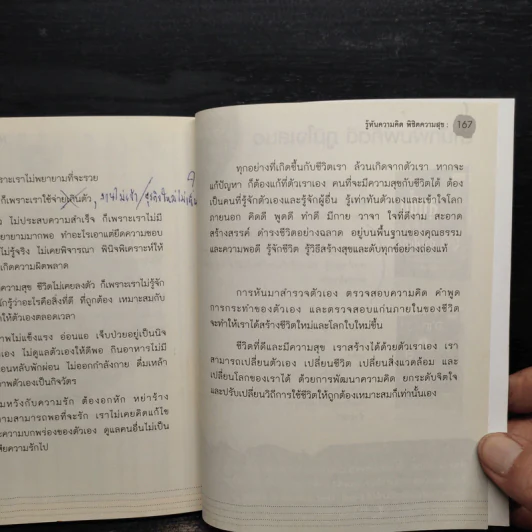 ราะเราไม่พยายามที่จะรวย
ก็เพราะเราใช้จ่ายเกินตัว, รายไม่เข้า/
ว ไม่ประสบความสำเร็จ ก็เพราะเราไม่มี
ยายามมากพอ ทำอะไรเอาแต่ยึดความชอบ
ไม่รู้จริง ไม่เคยพิจารณา พินิจพิเคราะห์ให้
เกิดความผิดพลาด
ความสุข ชีวิตไม่เคยลงตัว ก็เพราะเราไม่รู้จัก
ักรู้ว่าอะไรคือสิ่งที่ดี ที่ถูกต้อง เหมาะสมกับ
ให้ตัวเองตลอดเวลา
าพไม่แข็งแรง อ่อนแอ เจ็บป่วยอยู่เป็นนิจ
ัวเอง ไม่ดูแลตัวเองให้ดีพอ กินอาหารไม่มี
อนหลับพักผ่อน ไม่ออกกำลังกาย ดื่มเหล้า
าพตัวเองเป็นกิจวัตร
มหวังกับความรัก ต้องอกหัก หย่าร้าง
ามสามารถพอที่จะรัก เราไม่เคยคิดแก้ไข
ะความบกพร่องของตัวเอง ดูแลคนอื่นไม่เป็น
สียความรักไป
รู้ทันความคิด พิชิตความสุข : 167
ทุกอย่างที่เกิดขึ้นกับชีวิตเรา ล้วนเกิดจากตัวเรา หากจะ
แก้ปัญหา ก็ต้องแก้ที่ตัวเราเอง คนที่จะมีความสุขกับชีวิตได้ ต้อง
เป็นคนที่รู้จักตัวเองและรู้จักผู้อื่น รู้เท่าทันตัวเองและเข้าใจโลก
ภายนอก คิดดี พูดดี ทำดี มีกาย วาจา ใจที่ดีงาม สะอาด
สร้างสรรค์ ดำรงชีวิตอย่างฉลาด อยู่บนพื้นฐานของคุณธรรม
และความพอดี รู้จักชีวิต รู้วิธีสร้างสุขและดับทุกข์อย่างถ่องแท้
การหันมาสำรวจตัวเอง ตรวจสอบความคิด คำพูด
การกระทำของตัวเอง และตรวจสอบแก่นภายในของชีวิต
จะทำให้เราได้สร้างชีวิตใหม่และโลกใบใหม่ขึ้น
ชีวิตที่ดีและมีความสุข เราสร้างได้ด้วยตัวเราเอง เรา
สามารถเปลี่ยนตัวเอง เปลี่ยนชีวิต เปลี่ยนสิ่งแวดล้อม และ
เปลี่ยนโลกของเราได้ ด้วยการพัฒนาความคิด ยกระดับจิตใจ
และปรับเปลี่ยนวิถีการใช้ชีวิตให้ถูกต้องเหมาะสมก็เท่านั้นเอง